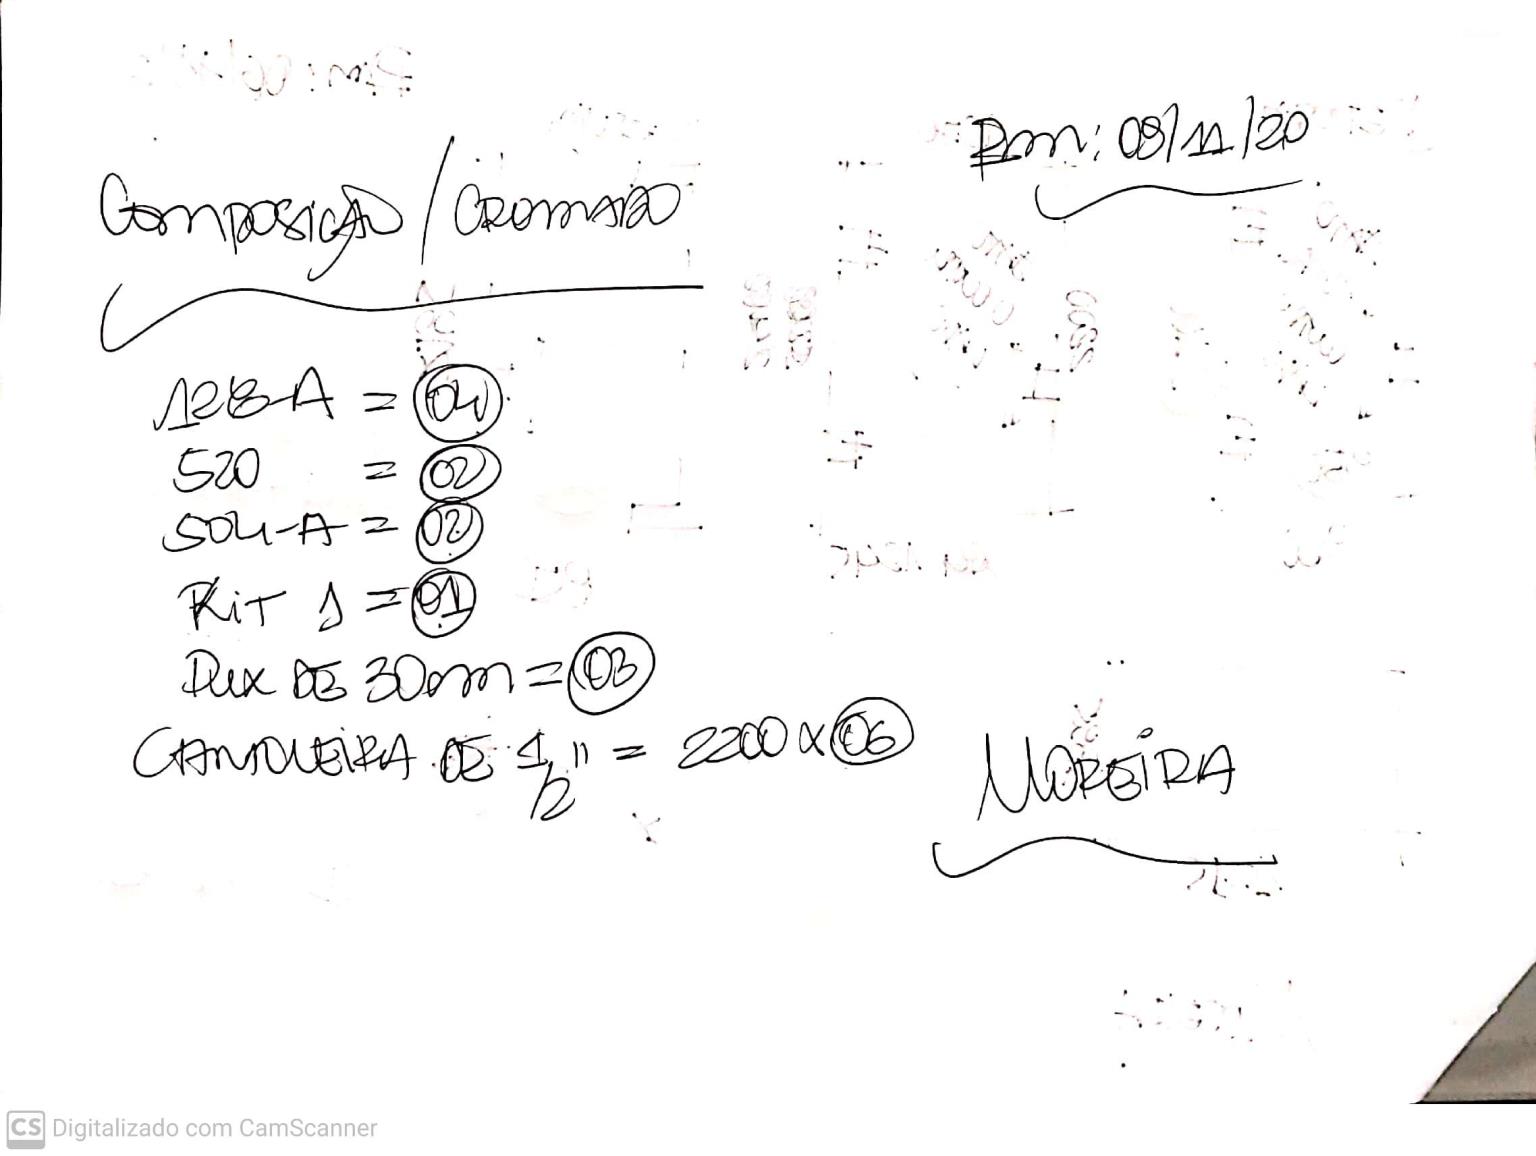 Rm: 09/11/20
Composição / CROMADO
128-A = 04
520 = 02
504-A = 02
Kit 1 = 01
Dux DE 30mm = 03
CANTONEIRA DE 1/2" = 2200 x 06
MOREIRA
CS Digitalizado com CamScanner